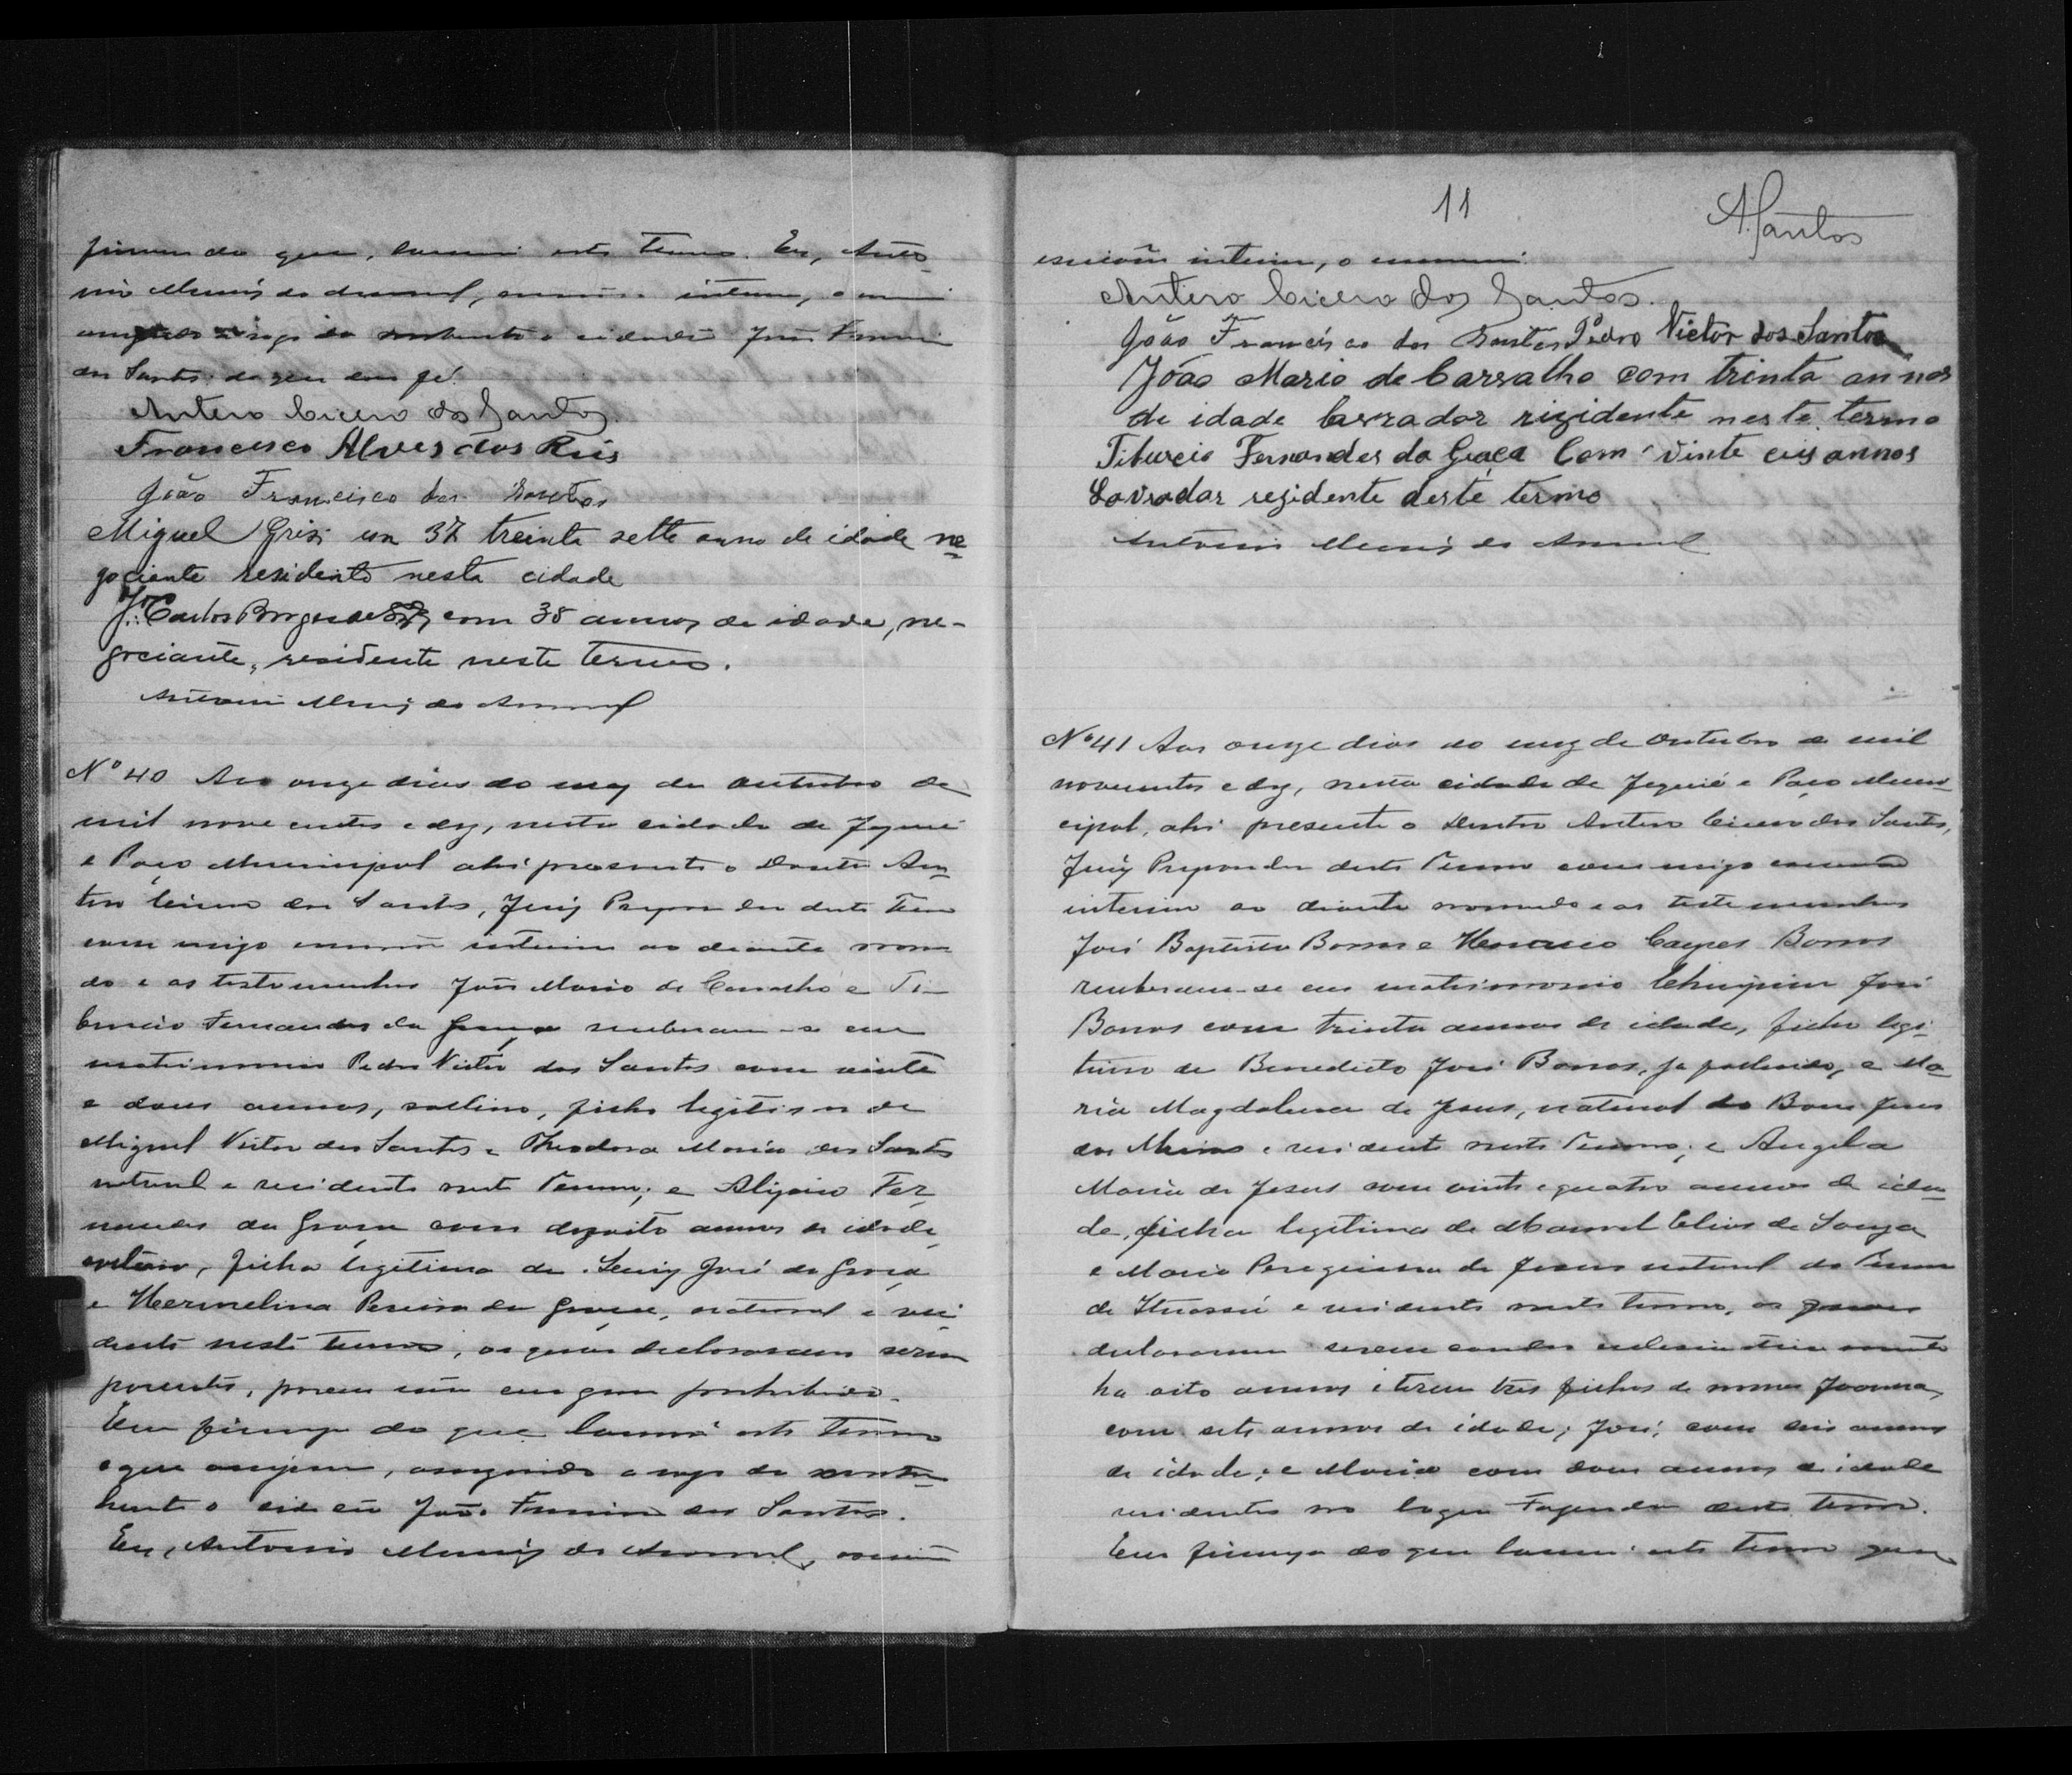 do que, lavrei este termo. Eu, Anto-
nio Muniz do Amaral, escrivão interino, o escrevi
a rogo da contrahente o cidadão João Francisco
dos Santos do que dou fé.
Antero Cicero dos Santos.
Francisco Alves dos Reis
João Francisco dos Santos
Miguel Grisi un 37 treinta sette anno de idade ne-
gociante residente nesta cidade
J. Carlos Borges de com 38 annos de idade, ne-
gociante, residente neste termo.
Antonio Muniz do Amaral
Nº 40 Aos onze dias do mez de Outubro de
mil nove centos e dez, nesta cidade de Jequié
e Paço Municipal ahi presente o Doutor An-
tero Cicero dos Santos, Juiz Preparador deste Termo
com migo escrivão interino ao deante nomea-
do e as testemunhas João Mario de Carvalho e Ti-
burcio Fernandes da Graça receberam-se em
matrimonio Pedro Victor dos Santos com vinte
e dous annos, solteiro, filho legitimo de
Miguel Victor dos Santos e Theodora Maria dos Santos
natural e residente neste Termo; e Alipia Fer-
nandes da Graça com dezoito annos de idade,
solteira, filha legitima de José da Graça
e Hermelina Pereira da Graça, natural e resi-
dente neste termo, os quaes declararam serem
parentes, porem não em grau prohibido.
Em firmeza do que lavrei este termo
que assignam, assignando a rogo da contra-
hente o cidadão João Francisco dos Santos.
Eu, Antonio Muniz do Amaral, escrivão
11
A. Santos
escrivão interino, o escrevi.
Antero Cicero dos Santos.
João Francisco dos Santos Pedro Victor dos Santos
João Mario de Carvalho com trinta annos
de idade lavrador rizidente neste termo
Tiburcio Fernandes da Graça Com vinte ceis annos
Lavrador rezidente deste termo
Antonio Muniz do Amaral
Nº 41 Aos onze dias do mez de Outubro de mil
novecentos e dez, nesta cidade de Jequié e Paço Muni-
cipal, ahi presente o Doutor Antero Cicero dos Santos,
Juiz Preparador deste Termo com migo escrivão
interino ao deante nomeado e as testemunhas
José Baptista Barros e Cayres Barros
receberam-se em matrimonio José
Barros com trinta annos de idade, filho legi-
timo de Benedicto José Barros, ja fallecido, e Ma-
ria Magdalena de Jesus, natural do Bom Jesus
dos Meiras e residente neste Termo; e Angela
Maria de Jesus com vinte e quatro annos de ida-
de, filha legitima de Manoel Elias de Souza
e Maria Peregrina de Jesus natural do Termo
de Ituassú e residente neste termo, os quaes
declararam serem casados eclesiasticamente
ha oito annos e terem tres filhos de nomes Joanna,
com sete annos de idade; José, com seis annos
de idade; e Maria com dous annos de idade
residentes no logar Fazenda deste termo.
Em firmeza do que lavrei este termo que